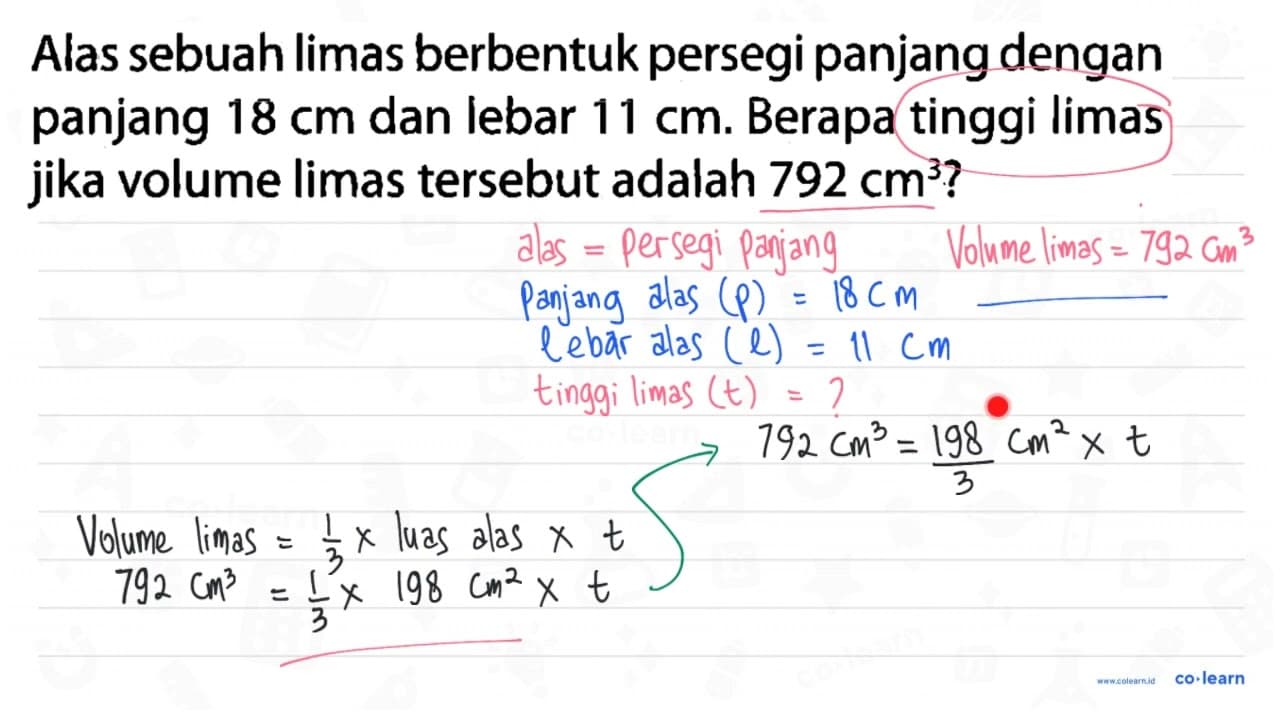 Alas sebuah limas berbentuk persegi panjang dengan
panjang 18 cm dan lebar 11 cm. Berapa tinggi limas
jika volume limas tersebut adalah 792 cm³?
alas = persegi panjang
Volume limas = 792 cm³
panjang alas (p) = 18 cm
lebar alas (l) = 11 cm
tinggi limas (t) = ?
792 cm³ = 198/3 cm² x t
Volume limas = 1/3 x luas alas x t
792 cm³ = 1/3 x 198 cm² x t
www.colearn.id co·learn